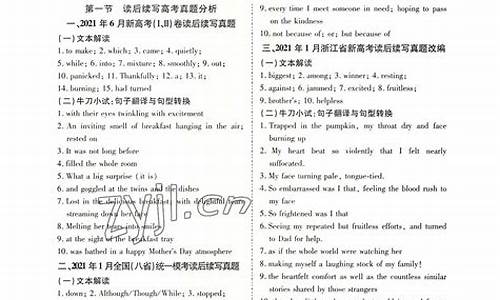 第一节 读后续写高考真题分析
一、2021 年 6 月新高考(Ⅰ,Ⅱ)卷读后续写真题
(一)文本解读
1. to make; 2. which; 3. came; 4. quietly;
5. while; 6. into; 7. mixture; 8. smoothly; 9. out;
10. panicked; 11. Thankfully; 12. a; 13. it;
14. burning; 15. had turned
(二)牛刀小试:句子翻译与句型转换
1. with their eyes twinkling with excitement
2. An inviting smell of breakfast hanging in the air;
rested on
3. It was not long before
4. filled the whole room
5. What a big surprise (it is)
6. and goggled at the twins and the dishes
7. Lost in the delicious breakfast, with delightful tears
streaming down her face
8. Melting her tears into smiles
9. at the sight of the breakfast tray
10. was bathed in a happy Mother's Day atmosphere
二、2021 年 1 月全国(八省)统一模考读后续写真题
(一)文本解读
1. down; 2. Although/Though/While; 3. stopped;
9. every time I meet someone in need; hoping to pass
on the kindness
10. not because of; or; but because of
三、2021 年 1 月浙江省新高考读后续写真题改编
(一)文本解读
1. biggest; 2. among; 3. winner; 4. resting;
5. against; 6. jammed; 7. excited; 8. fruitless;
9. brother's; 10. helpless
(二)牛刀小试:句子翻译与句型转换
1. Trapped in the pumpkin, my throat dry and face
burning up
2. My heart beat so violently that I felt nearly
suffocated.
3. My face turning pale, tongue-tied.
4. So embarrassed was I that, feeling the blood rush to
my face
5. So frightened was I that
6. Seeing my repeated but fruitless efforts, and turned
to Dad for help.
7. as if the whole world were watching her
8. making myself a laughing stock of my family!
9. the heartfelt comfort as well as the constant similar
stories shared by those strangers
zyjl.cn